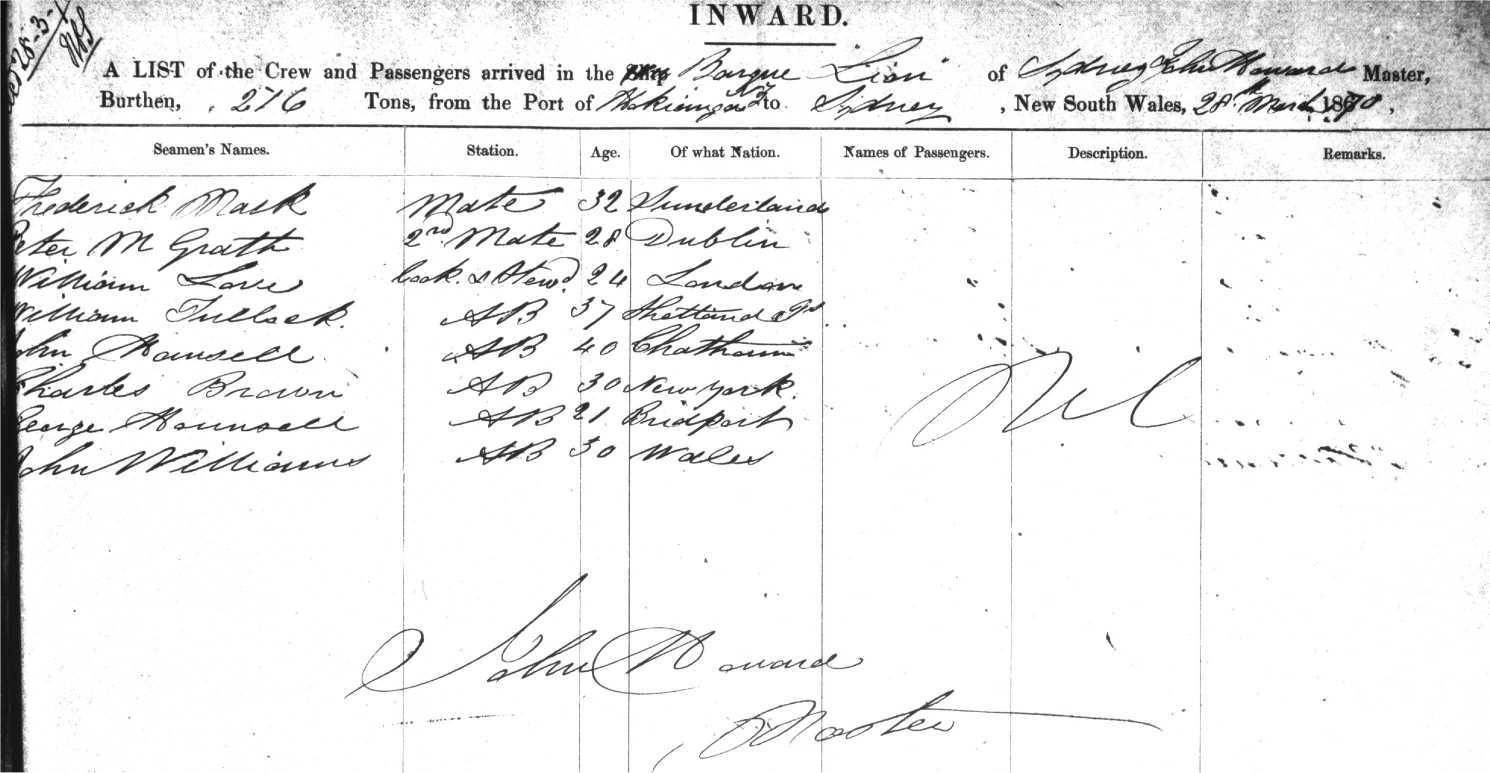 28-3-
INWARD.
A LIST of the Crew and Passengers arrived in the Ship Barque "Lion" of Sydney John Howard Master,
Burthen, 276 Tons, from the Port of Hokianga NZ to Sydney, New South Wales, 28th March 1870,
Seamen's Names. Station. Age. Of what Nation. Names of Passengers. Description. Remarks.
Frederick Mack Mate 32 Sunderland
Peter McGrath 2nd Mate 28 Dublin
William Love Cook & Stewd 24 London
William Tullock. AB 37 Shetland Is
John Mansell AB 40 Chatham
Charles Brown AB 30 New York.
George Hounsell AB 21 Bridport
John Williams AB 30 Wales
Nil
John Howard
Master